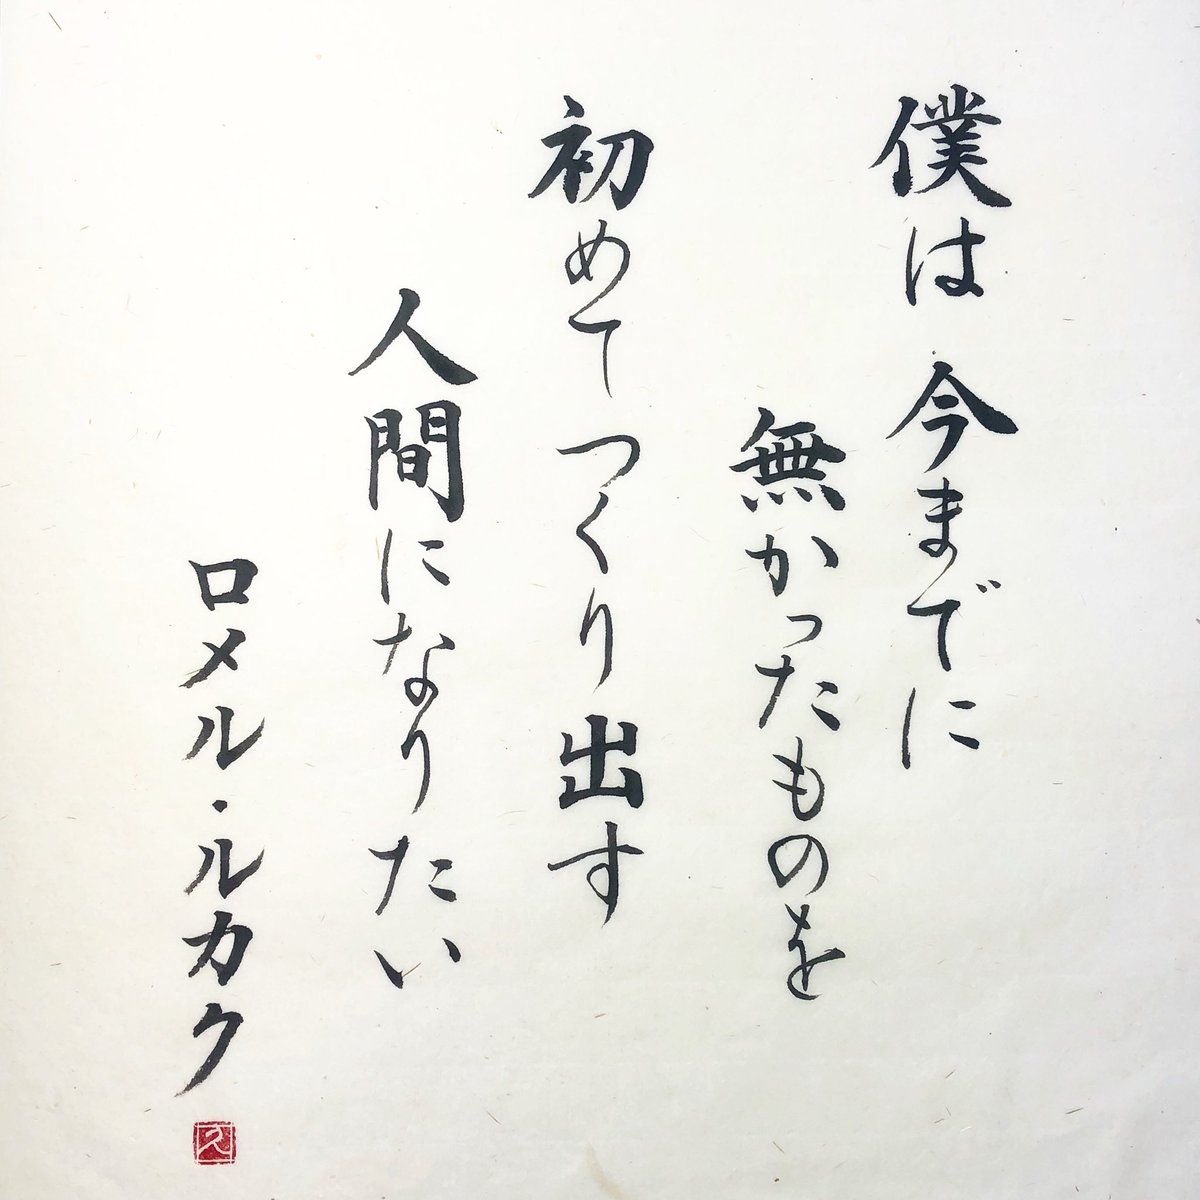 僕は 今までに
無かったものを
初めて つくり出す
人間になりたい
ロメル・ルカク
久